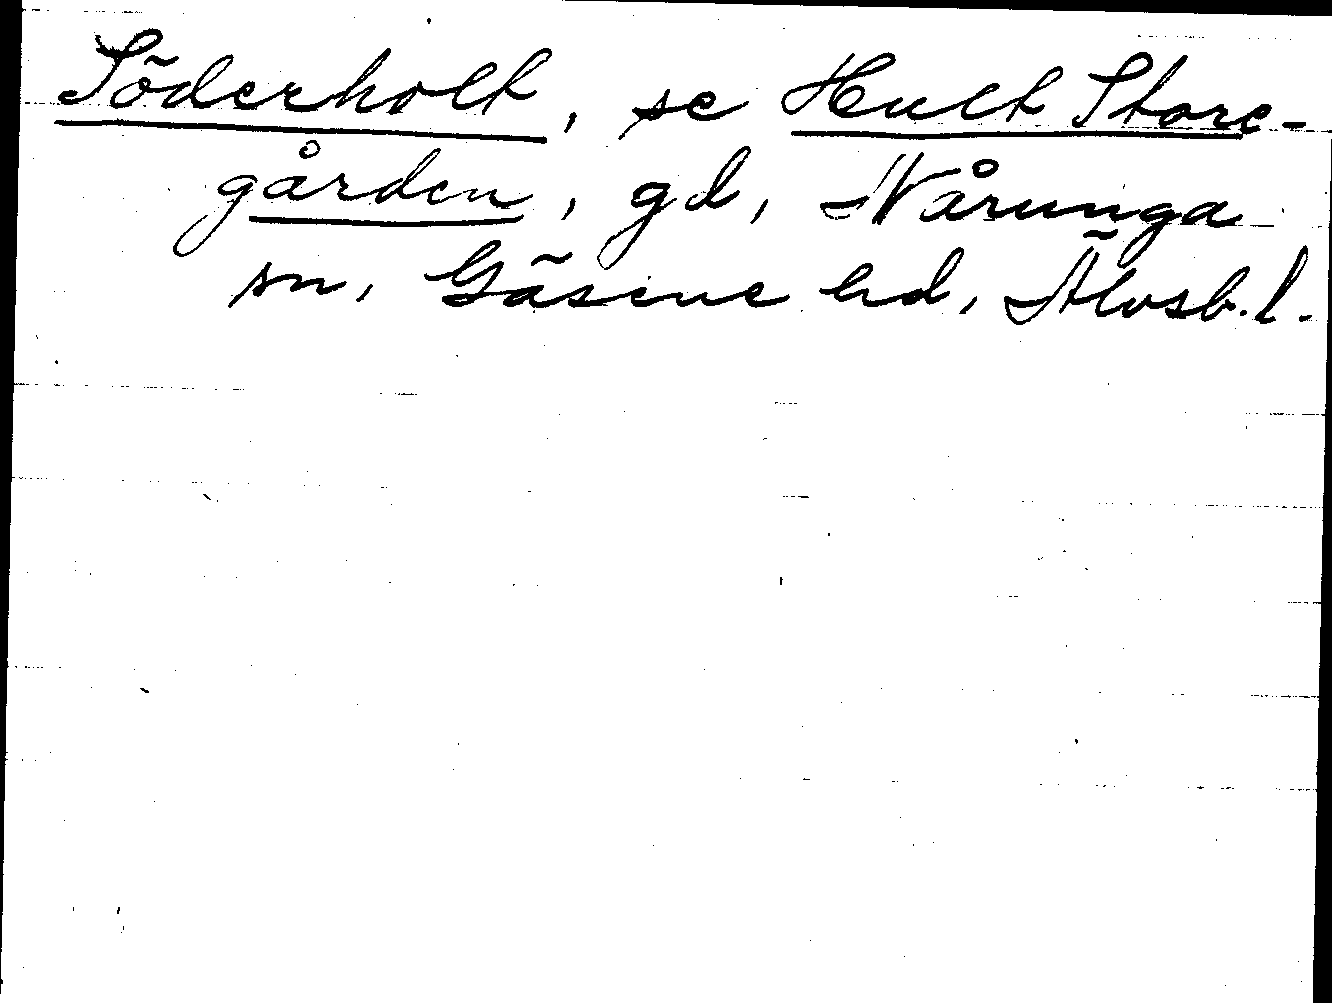 Söderholt, se Hult Store-
gården, gd, Nårunga
sn, Gäsene hd, Älvsb. l.